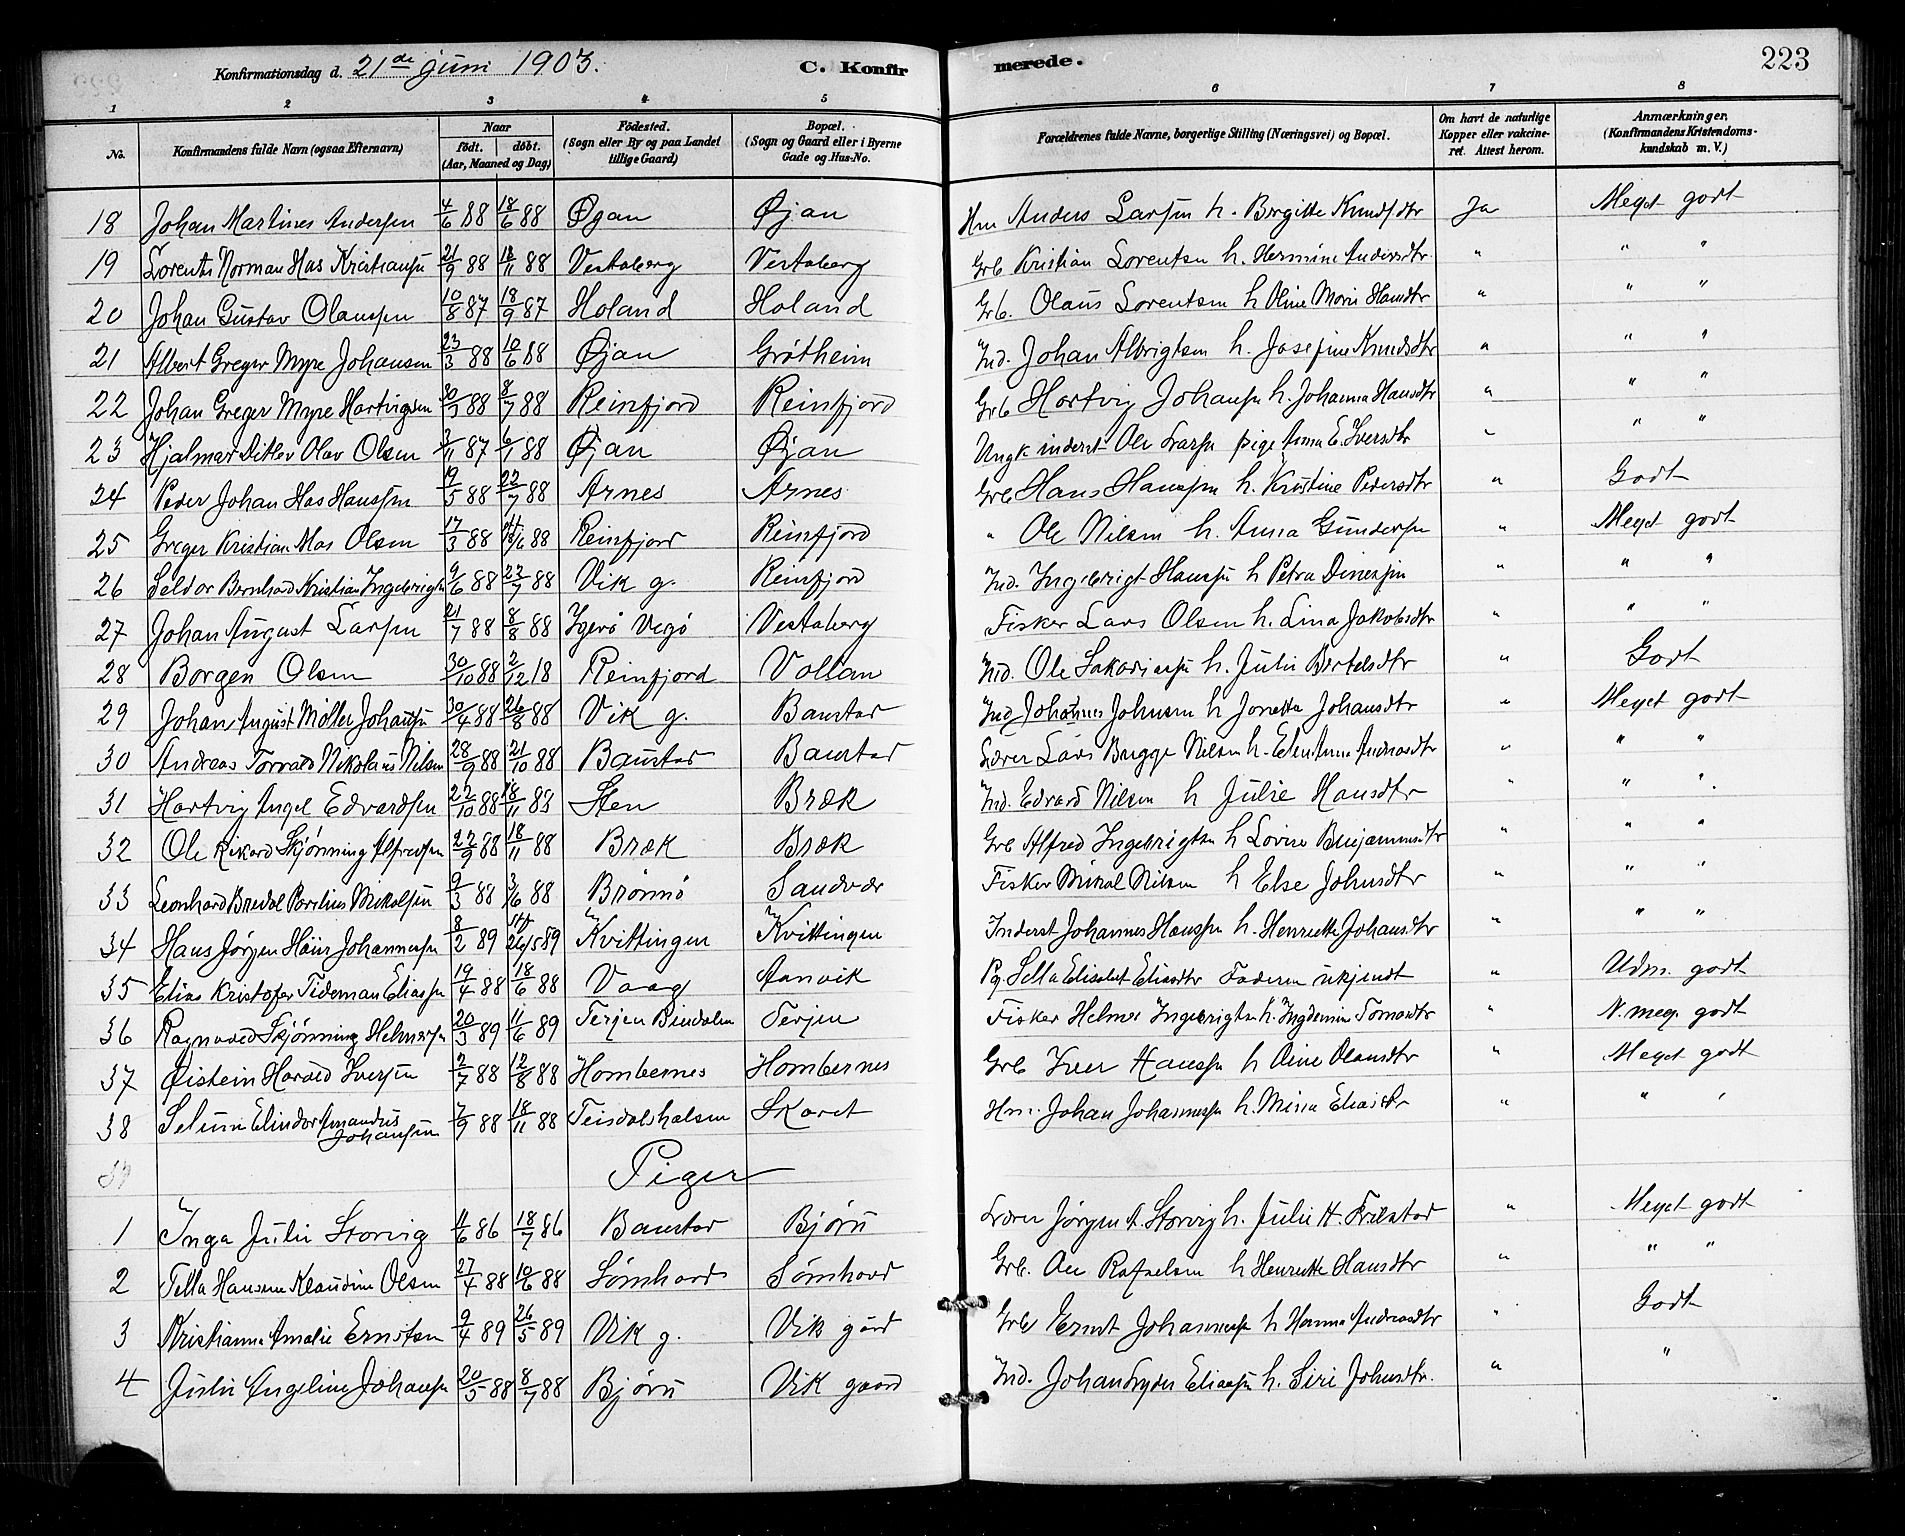 Konfirmationsdag d. 21de juni 1903. C. Konfir merede. 223
1 2 3 4 5 6 7 8
No. Konfirmandens fulde Navn (ogsaa Efternavn) Naar født. døbt. (Aar, Maaned og Dag) Fødested. (Sogn eller By og paa Landet tillige Gaard) Bopæl. (Sogn og Gaard eller i Byerne Gade og Hus-No. Forældrenes fulde Navne, borgerlige Stilling (Næringsvei) og Bopæl. Om havt de naturlige Kopper eller vakcineret. Attest herom. Anmærkninger. (Konfirmandens Kristendomskundskab m. V.)
18 Johan Martines Andersen 4/6 88 18/6 88 Øyan Øjan Hm Anders Larsen h. Birgitte Knudsdtr Ja Meget godt
19 Lorents Norman Has Kristiansen 21/9 88 18/11 88 Vestaberg Vestaberg Grb Kristian Lorentsen h. Hermine Andersdtr. " " "
20 Johan Gustav Olaussen 10/8 87 18/9 87 Holand Holand Grb. Olaus Lorentsen h Oline Marie Hansdtr " " "
21 Albert Greger Myre Johansen 23/3 88 10/6 88 Øjan Grøtheim Ind. Johan Albrigtsen h. Josefine Knudsdtr " " "
22 Johan Greger Myre Hartvigsen 30/3 88 8/7 88 Reinfjord Reinfjord Grb Hartvig Johansen h. Johanna Hansdtr " " "
23 Hjalmar Ditlev Olav Olsen 3/11 87 6/1 88 Øjan Øjan Ungk inderst Ole Larsen pige Anna E. Iversdtr " " "
24 Peder Johan Has Hanssen 19/5 88 22/7 88 Arnes Arnes Grb Hans Hanssen h. Kristine Pedersdtr " Godt
25 Greger Kristian Mos Olsen 17/3 88 /6 88 Reinfjord Reinfjord " Ole Nilsen h. Anna Gundersen " Meget godt
26 Seldor Bernhard Kristian Ingebrigtsen 9/6 88 22/7 88 Vik g. Reinfjord Ind. Ingebrigt Hanssen h Petra Dinesen " " "
27 Johan August Larsen 21/7 88 8/8 88 Igerø Vegø Vestaberg Fisker Lars Olsen h. Lina Jakobsdtr " " "
28 Borgen Olsen 30/10 88 2/12 18 Reinfjord Vollan Ind. Ole Sakariassen h. Julie Bertelsdtr " Godt
29 Johan August Møller Johansen 30/4 88 26/8 88 Vik g. Baustad Ind Johannes Johnsen h Jonetta Johansdtr " Meget godt
30 Andreas Torvald Nikolaus Nilsen 28/9 88 21/10 88 Baustad Baustad Lærer Lars Bugge Nilsen h. Elen Anna Andreasdtr " " "
31 Hartvig Angel Edvardsen 22/10 88 18/11 88 Sten Bræk Ind. Edvard Nilsen h Julie Hansdtr " " "
32 Ole Rikard Skjønning Alfredsen 22/9 88 18/11 88 Bræk Bræk Grb Alfred Ingebrigtsen h Lovise Benjaminsdtr " " "
33 Leonhard Bredal Parelius Mikalsen 9/3 88 3/6 88 Brønnø Sandvær Fisker Mikal Nilsen h Else Johnsdtr " " "
34 Hans Jørgen Johannessen 8/2 89 26/5 89 Kvittingen Kvittingen Inderst Johannes Hanssen h. Henriette Johansdtr " " "
35 Elias Kristofer Tideman Eliassen 19/4 88 18/6 88 Vaag Aanvik Pg. Sella Elisabet Eliasdtr Faderen ukjendt " Udm. godt
36 Ragnvald Skjønning Helmersen 20/3 89 11/6 89 Terjen Bindalen Terjen Fisker Helmer Ingebrigtsen h. " N. meg. godt
37 Øistein Harald Iversen 2/7 88 12/8 88 Hombernes Hombernes Grb Iver Hanssen h Oline Olausdtr " Meget godt
38 Selum Elindor Amandus Johansen 7/9 88 18/11 88 Teisdalshalsen Skaret Hm. Johan Johannessen h. Mina Eliasdtr " "
39 Piger
1 Inga Julie Storvig 11/6 86 18/7 86 Baustad Bjørn Lærer Jørgen A. Storvig h. Julie H. Frilstad " Meget godt
2 Tella Hansine Klaudine Olsen 27/4 88 10/6 88 Sømhovd Sømhovd Grb. Ole Rafaelsen h Henriette Hansdtr " " "
3 Kristianna Amalie Ernstsen 9/4 89 26/5 89 Vik g. Vik gård Grb Ernst Johannessen h Hanna Andreasdtr " Godt
4 Julie Angeline Johansen 20/5 88 8/7 88 Bjørn Vik gaard Ind. Johan Fryder Eliassen h. Siri Johnsdtr. " "